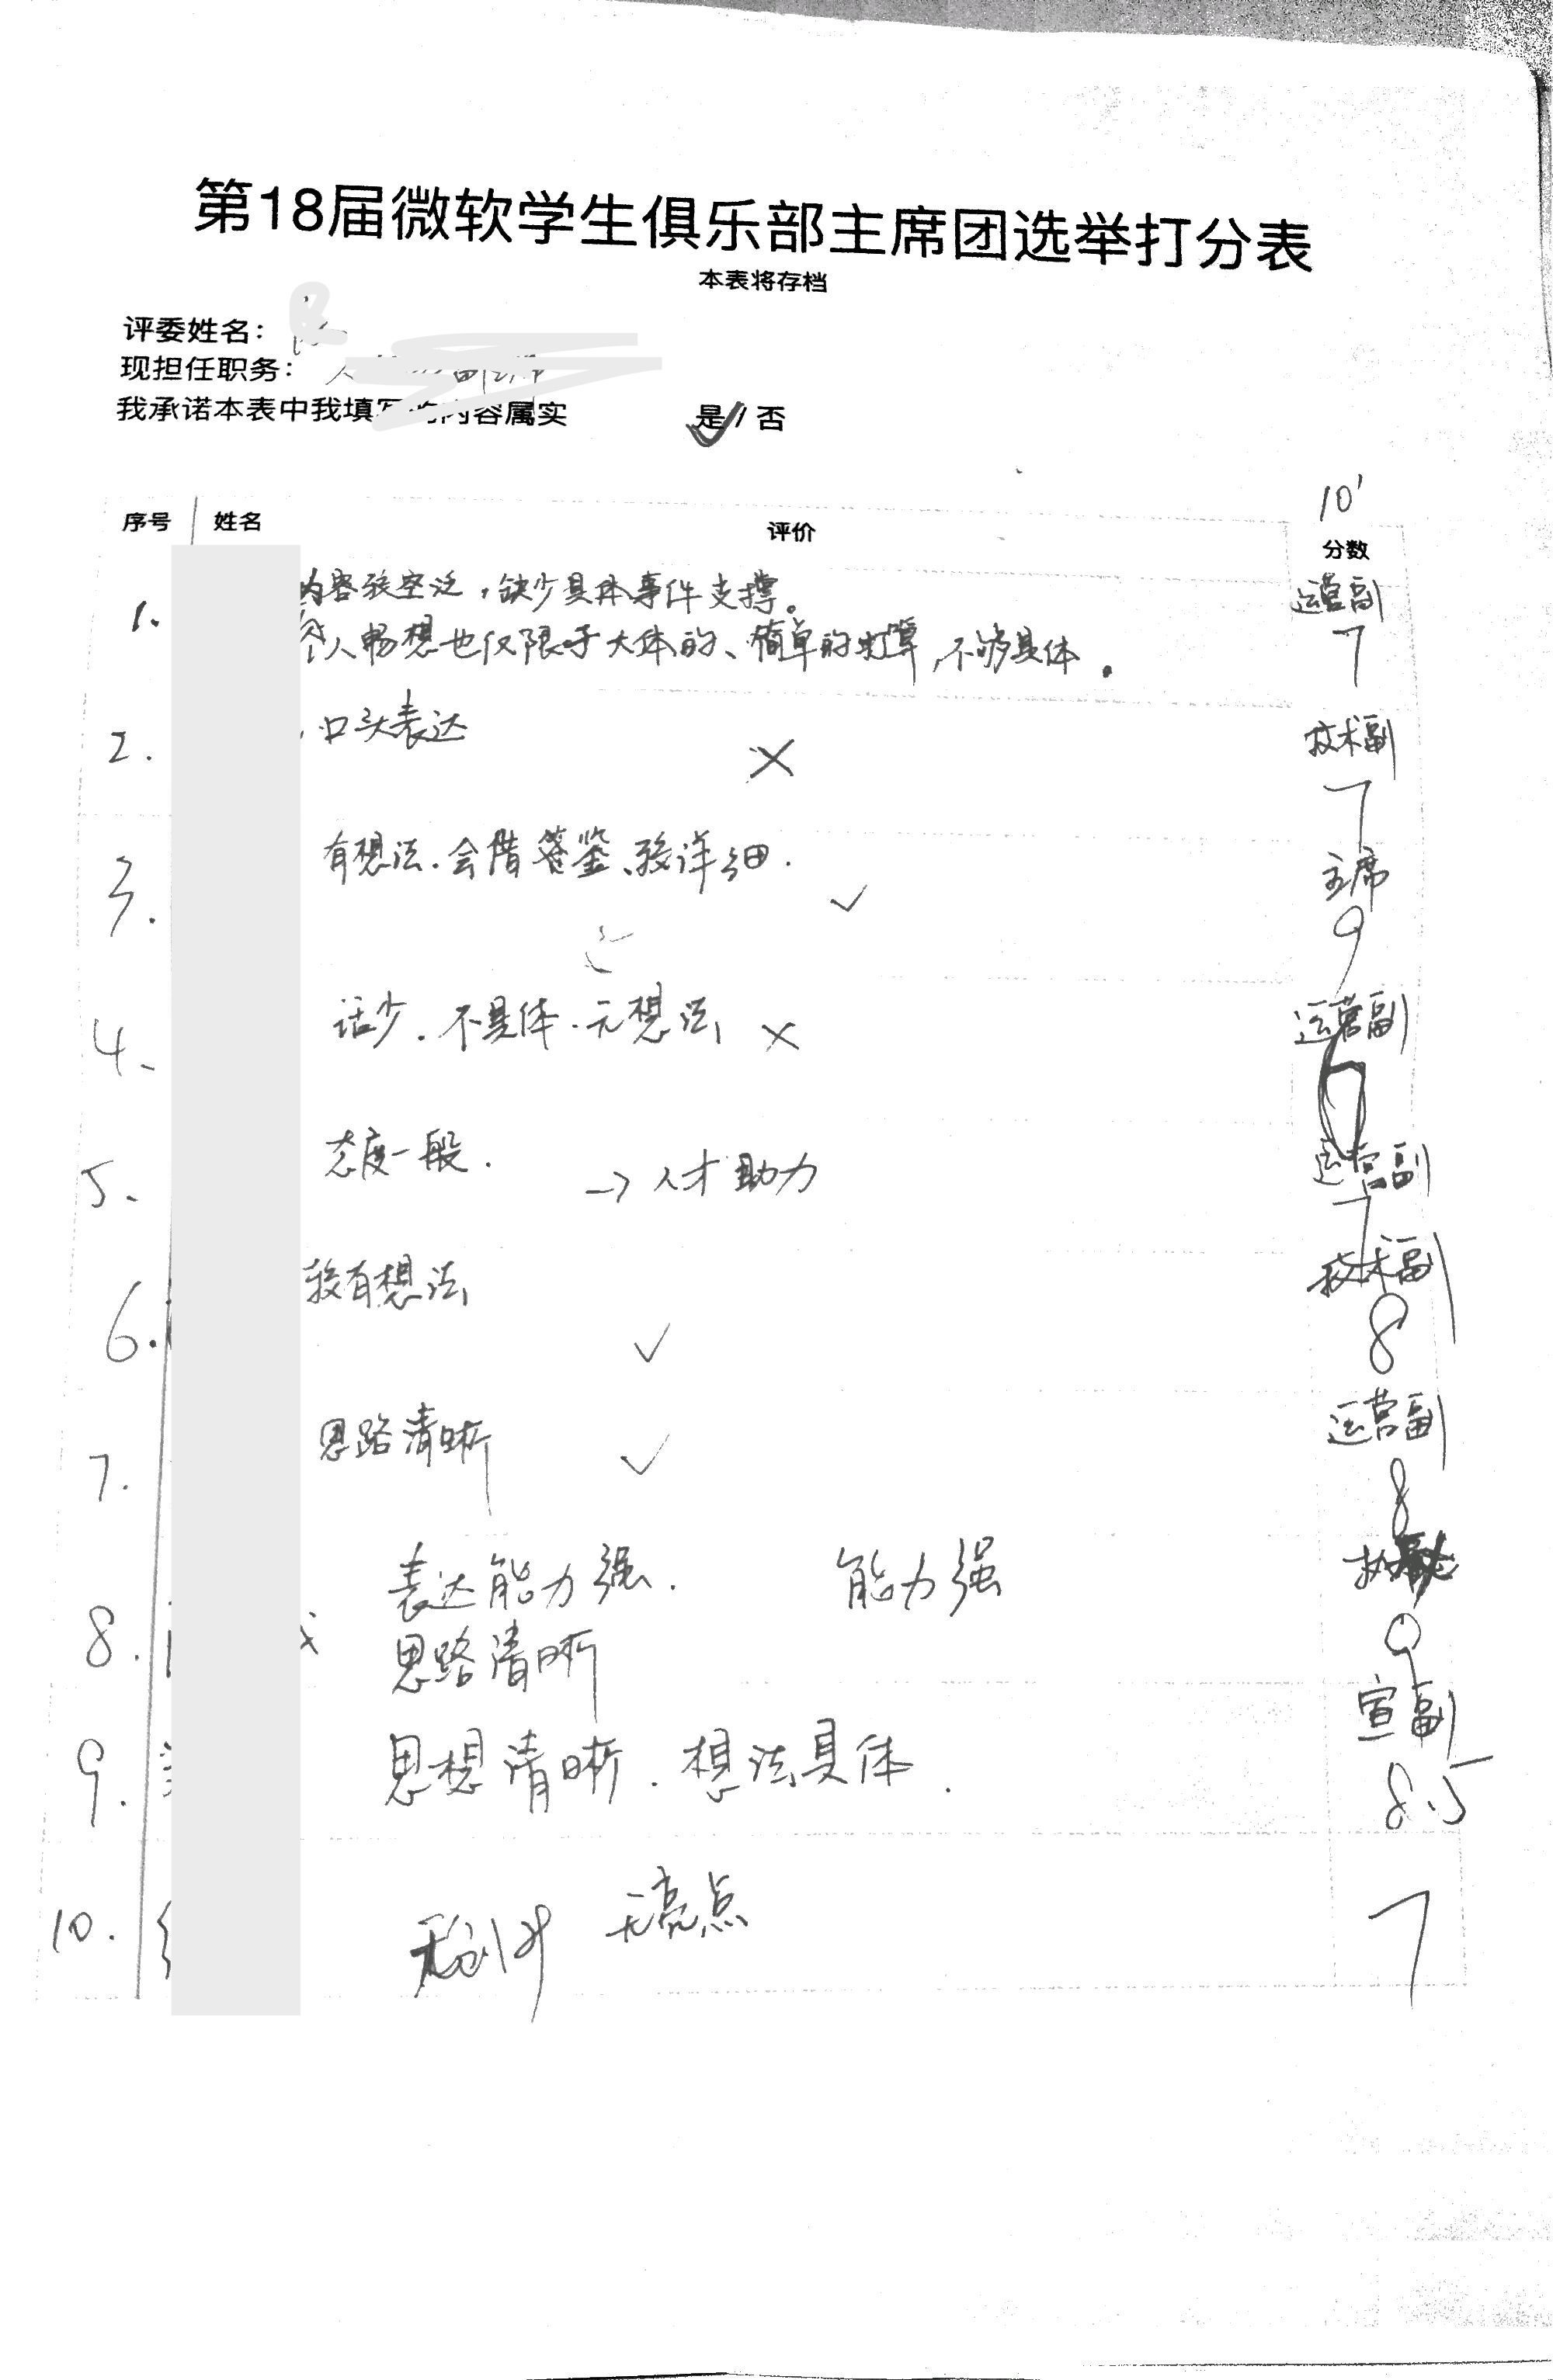 第18届微软学生俱乐部主席团选举打分表
本表将存档
评委姓名：
现担任职务：
我承诺本表中我填写的内容属实 是/否
10'
序号 姓名 评价 分数
1. 内容较空泛，缺少具体事件支撑。 运营副
个人畅想也仅限于大体的、简单的打算，不够具体。 7
2. 口头表达 × 技术副
7
3. 有想法.会借鉴、较详细. ✓ 主席
9
4. 话少.不具体.无想法 × 运营副
5. 态度一般. → 人才助力 运营副
7
6. 较有想法 ✓ 技术副
8
7. 思路清晰 ✓ 运营副
8
8. 表达能力强. 能力强
思路清晰 9
宣副
9. 思想清晰.想法具体. 8.5
10. 无亮点 7